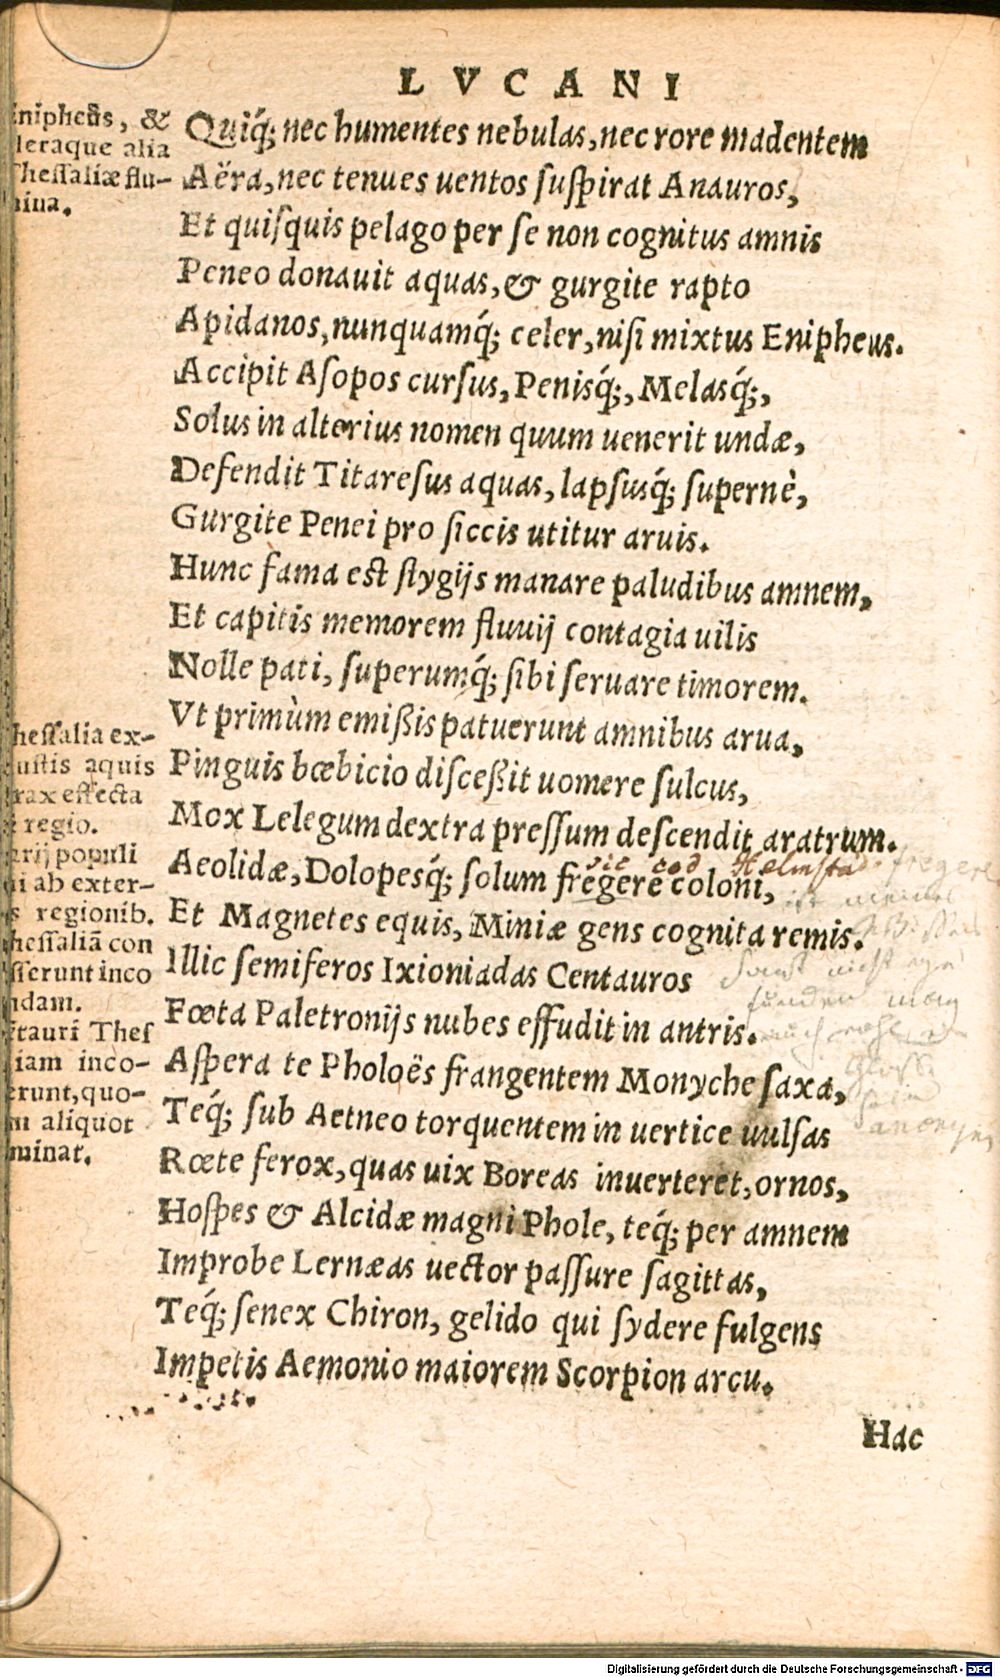 LVCANI
Eniphеus, &
leraque alia
Thessaliæ flu-
mina.
Quiq́; nec humentes nebulas, nec rore madentem
Aëra, nec tenues uentos suspirat Anauros,
Et quisquis pelago per se non cognitus amnis
Peneo donauit aquas, & gurgite rapto
Apidanos, nunquamq́; celer, nisi mixtus Enipheus.
Accipit Asopos cursus, Penisq́;, Melasq́;,
Solus in alterius nomen quum uenerit undæ,
Defendit Titaresus aquas, lapsusq́; supernè,
Gurgite Penei pro siccis utitur aruis.
Hunc fama est stygijs manare paludibus amnem,
Et capitis memorem fluuij contagia uilis
Nolle pati, superumq́; sibi seruare timorem.
Vt primùm emißis patuerunt amnibus arua,
Pinguis bœbicio disceßit uomere sulcus,
Mox Lelegum dextra pressum descendit aratrum.
Aeolidæ, Dolopesq́; solum fregere coloni,
Et Magnetes equis, Miniæ gens cognita remis.
Illic semiferos Ixioniadas Centauros
Fœta Paletronijs nubes effudit in antris.
Aspera te Pholoës frangentem Monyche saxa,
Teq́; sub Aetneo torquentem in uertice uulsas
Rœte ferox, quas uix Boreas inuerteret, ornos,
Hospes & Alcidæ magni Phole, teq́; per amnem
Improbe Lernæas uector passure sagittas,
Teq́; senex Chiron, gelido qui sydere fulgens
Impetis Aemonio maiorem Scorpion arcu.
hessalia ex-
ustis aquis
rax effecta
regio.
arij populi
ui ab exter-
s regionib.
hessaliã con
sserunt inco
ndam.
ẽtauri Thes
iam inco-
erunt, quo-
m aliquot
minat.
sic cod Helmsta
fregere
ist
nicht
funden mag
auch wohl
Glosse
Hac
Digitalisierung gefördert durch die Deutsche Forschungsgemeinschaft - DFG